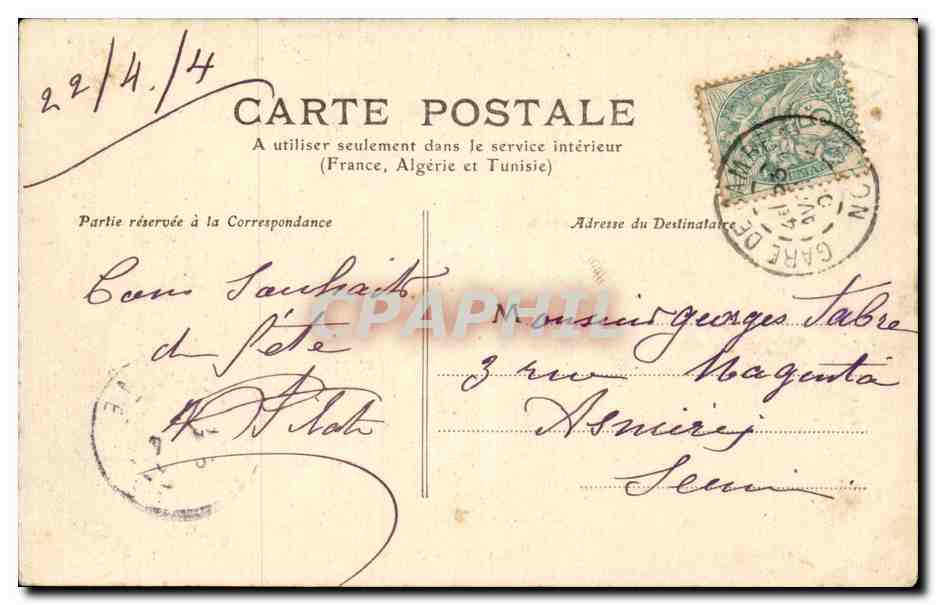 22/4/4
CARTE POSTALE
A utiliser seulement dans le service intérieur
(France, Algérie et Tunisie)
Partie réservée à la Correspondance
Adresse du Destinataire
Bons Souhaits
de fête
CPAPHIL
Monsieur georges Fabre
3 rue Magenta
Asnières
Seine
GARE DE